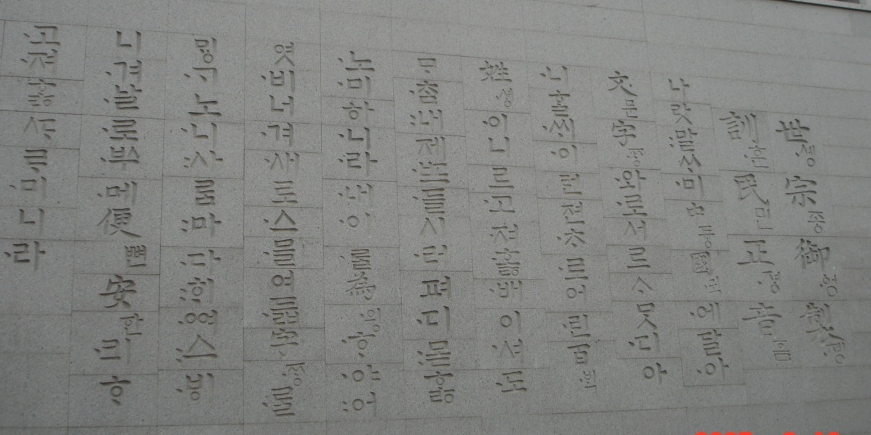 世솅宗종御엉製졩
訓훈民민正졍音ᅙᅳᆷ
나랏말ᄊᆞ미中듀ᇰ國귁에달아
文문字ᄍᆞᆼ와로서르ᄉᆞᄆᆞᆺ디아
니ᄒᆞᆯᄊᆡ이런젼ᄎᆞ로어린百ᄇᆡᆨ
姓셔ᇰ이니르고져호ᇙ배이셔도
ᄆᆞᄎᆞᆷ내제ᄠᅳ들시러펴디몯ᄒᆞᇙ
노미하니라내이ᄅᆞᆯ為윙ᄒᆞ야어
엿비너겨새로스믈여듧字ᄍᆞᆼᄅᆞᆯ
ᄆᆡᇰᄀᆞ노니사ᄅᆞᆷ마다ᄒᆡᅇᅧ수ᄫᅵ
니겨날로ᄡᅮ메便뼌安ᅙᅡᆫ킈ᄒᆞ
고져ᄒᆞᇙᄯᆞᄅᆞ미니라